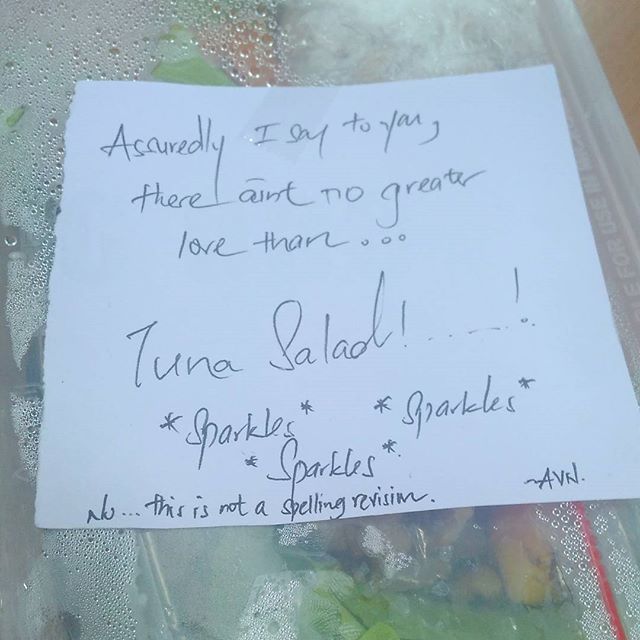 Assuredly I say to you,
there aint no greater
love than...
Tuna Salad! ......!
*Sparkles* *Sparkles*
*Sparkles*
No... this is not a spelling revision.
~AVN.
FOR USE IN